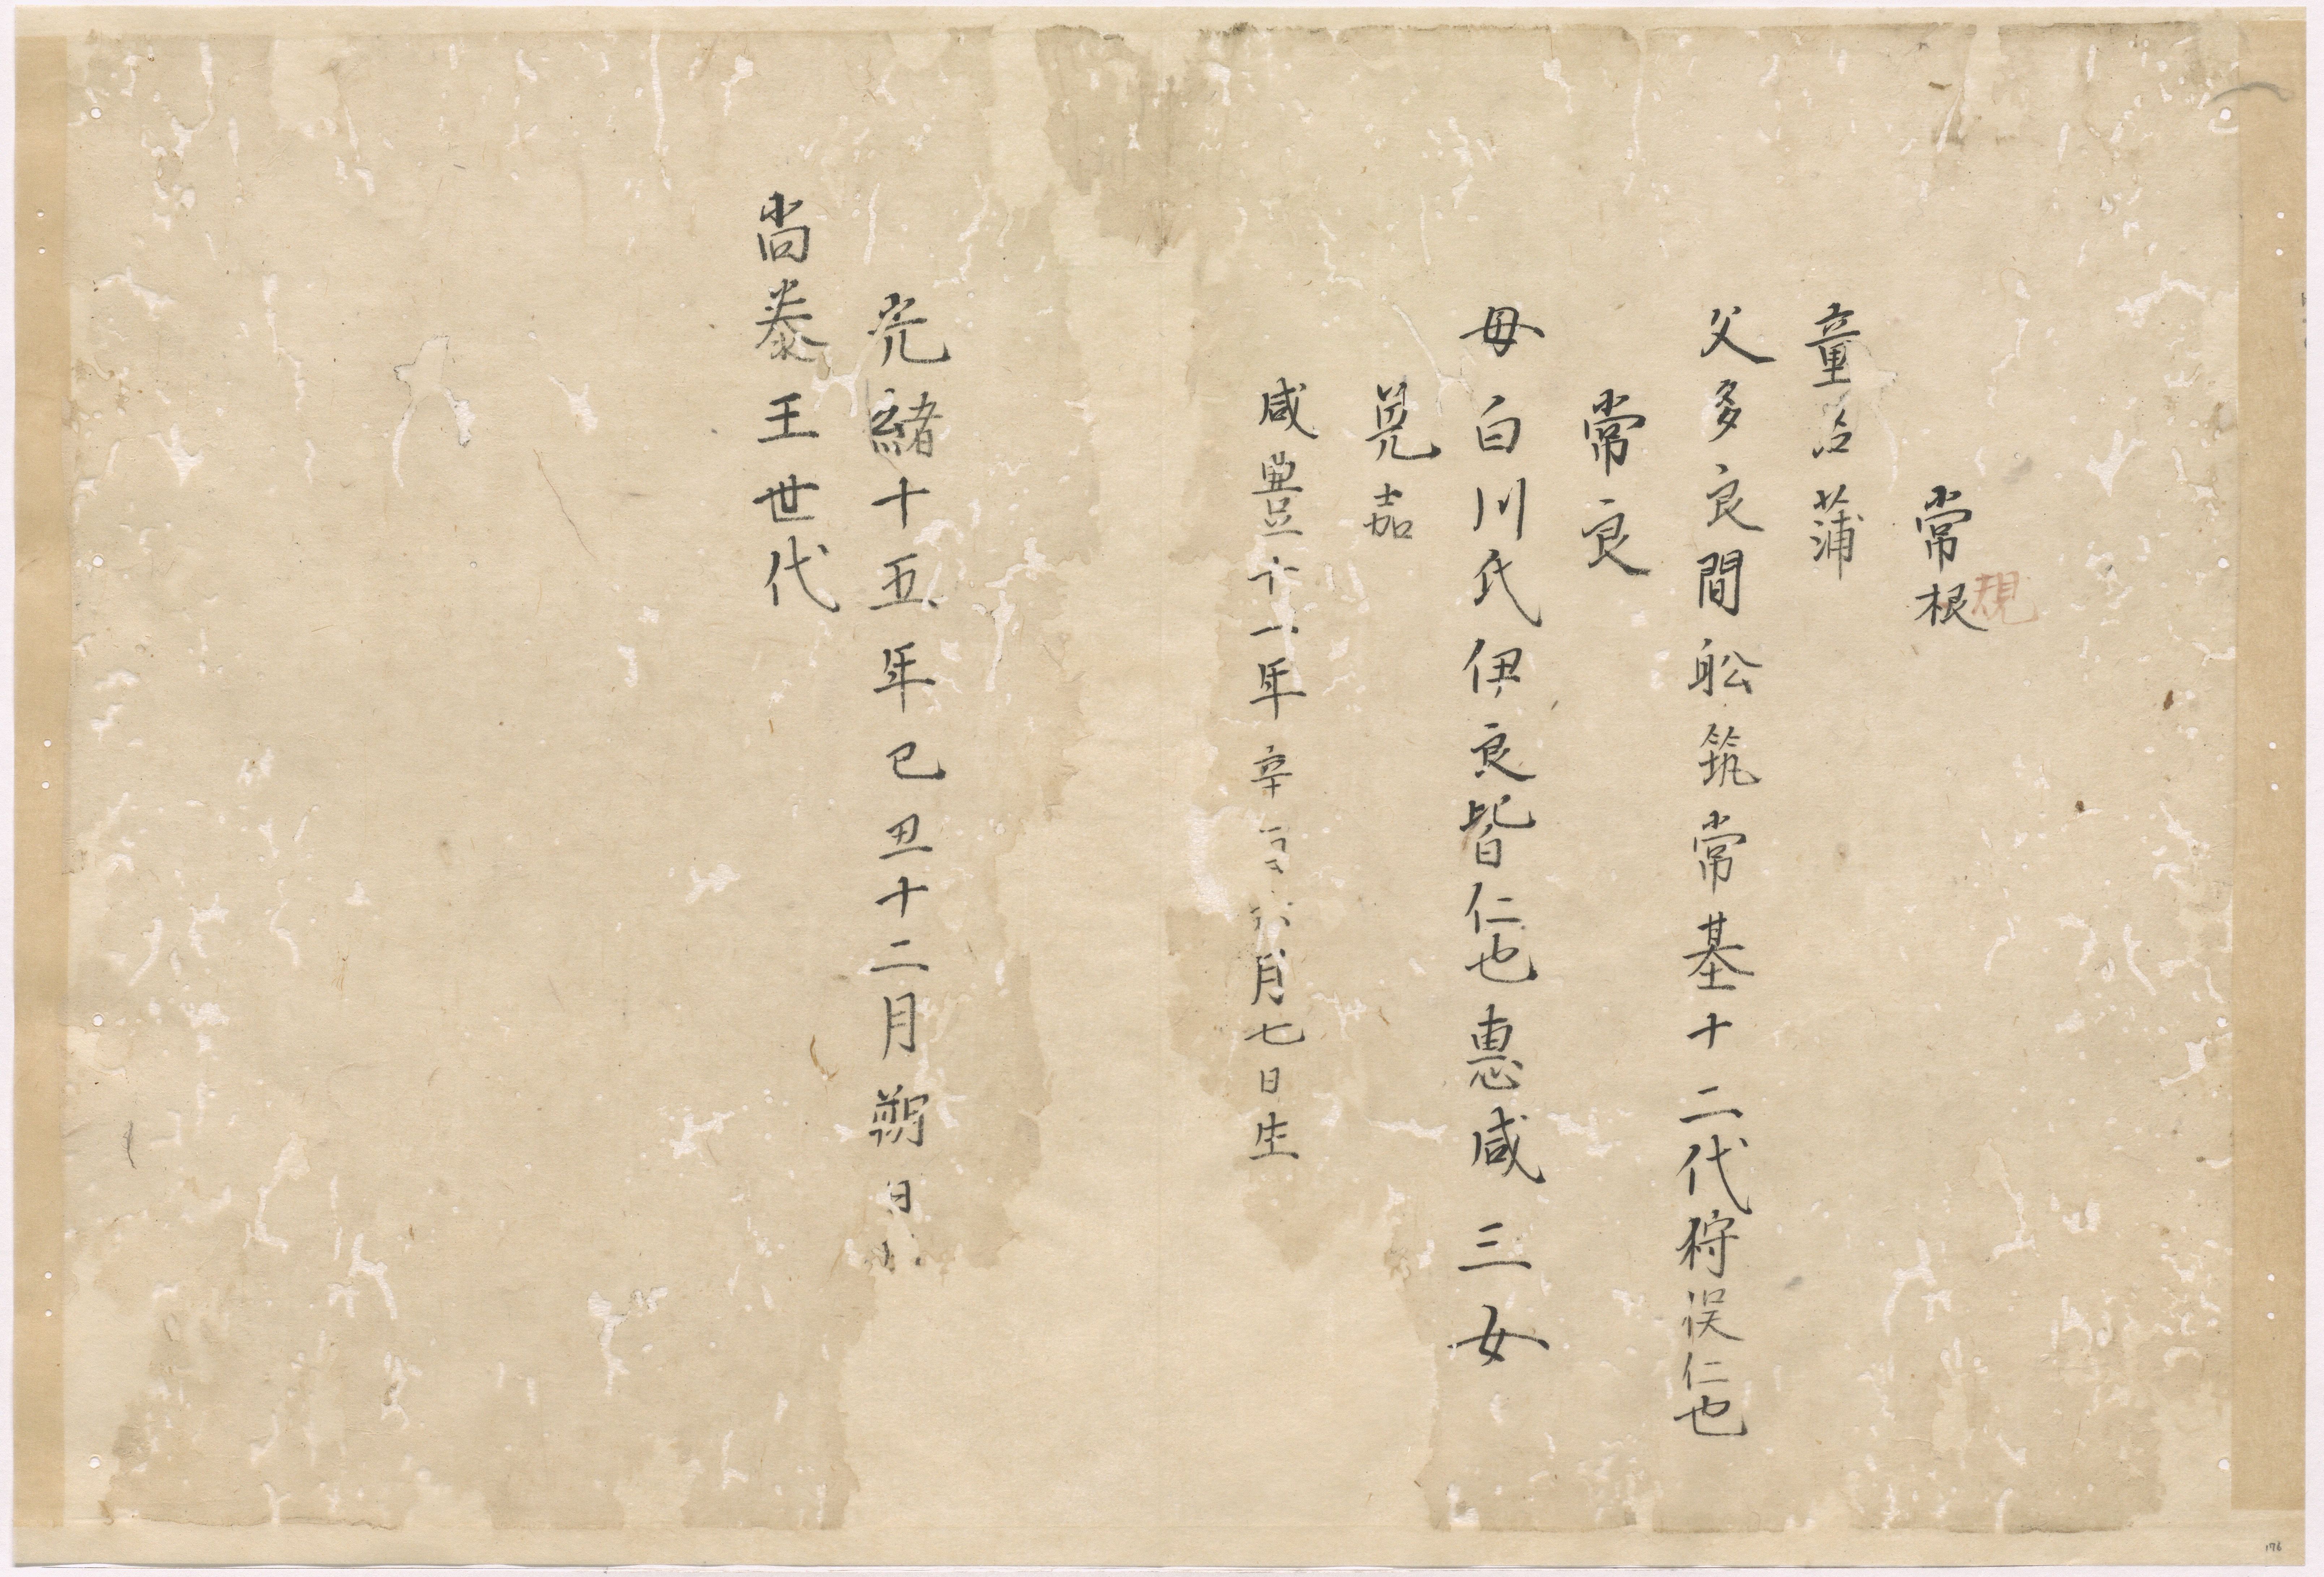 常根
規
童名蒲
父多良間舩筑常基十二代狩俣仁也
常良
母白川氏伊良皆仁也惠咸三女
晃嘉
咸豊十一年辛 六月七日生
光緒十五年己丑十二月朔日
尚泰王世代
176